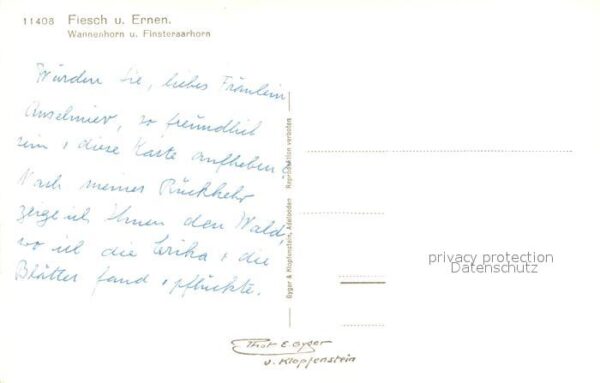 11408 Fiesch u. Ernen.
Wannenhorn u. Finsteraarhorn
Würden Sie, liebes Fräulein
Anselmier, so freundlich
sein, diese Karte aufheben?
Nach meiner Rückkehr
zeige ich Ihnen den Wald,
wo ich die Erika, die
Blätter fand, pflückte.
Gyger & Klopfenstein, Adelboden Reproduktion verboten
privacy protection
Datenschutz
Phot E. Gyger
u. Klopfenstein